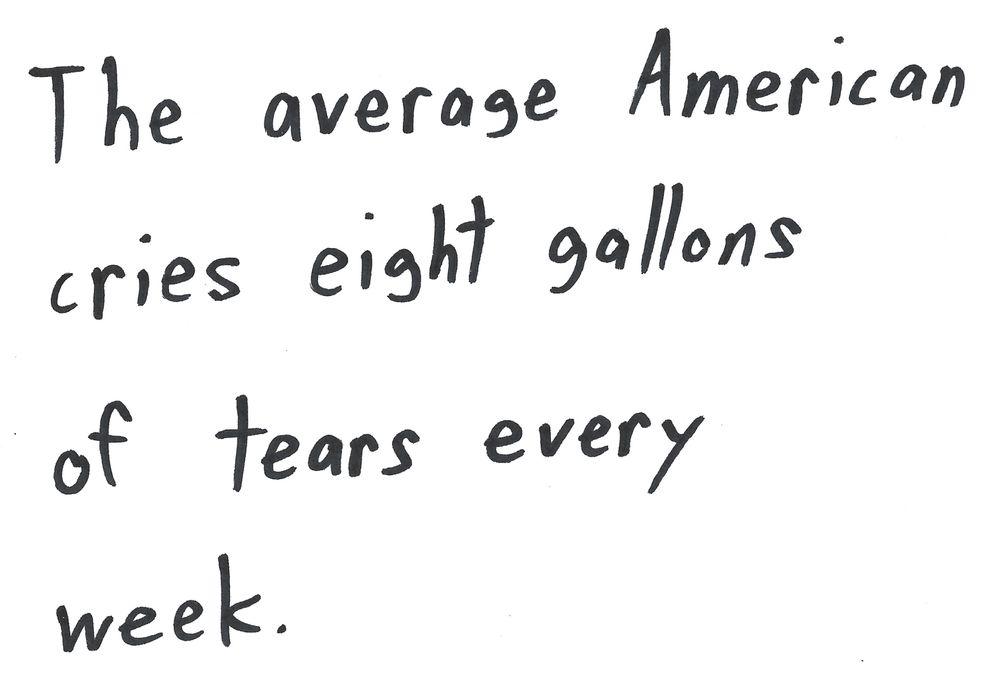 The average American
cries eight gallons
of tears every
week.